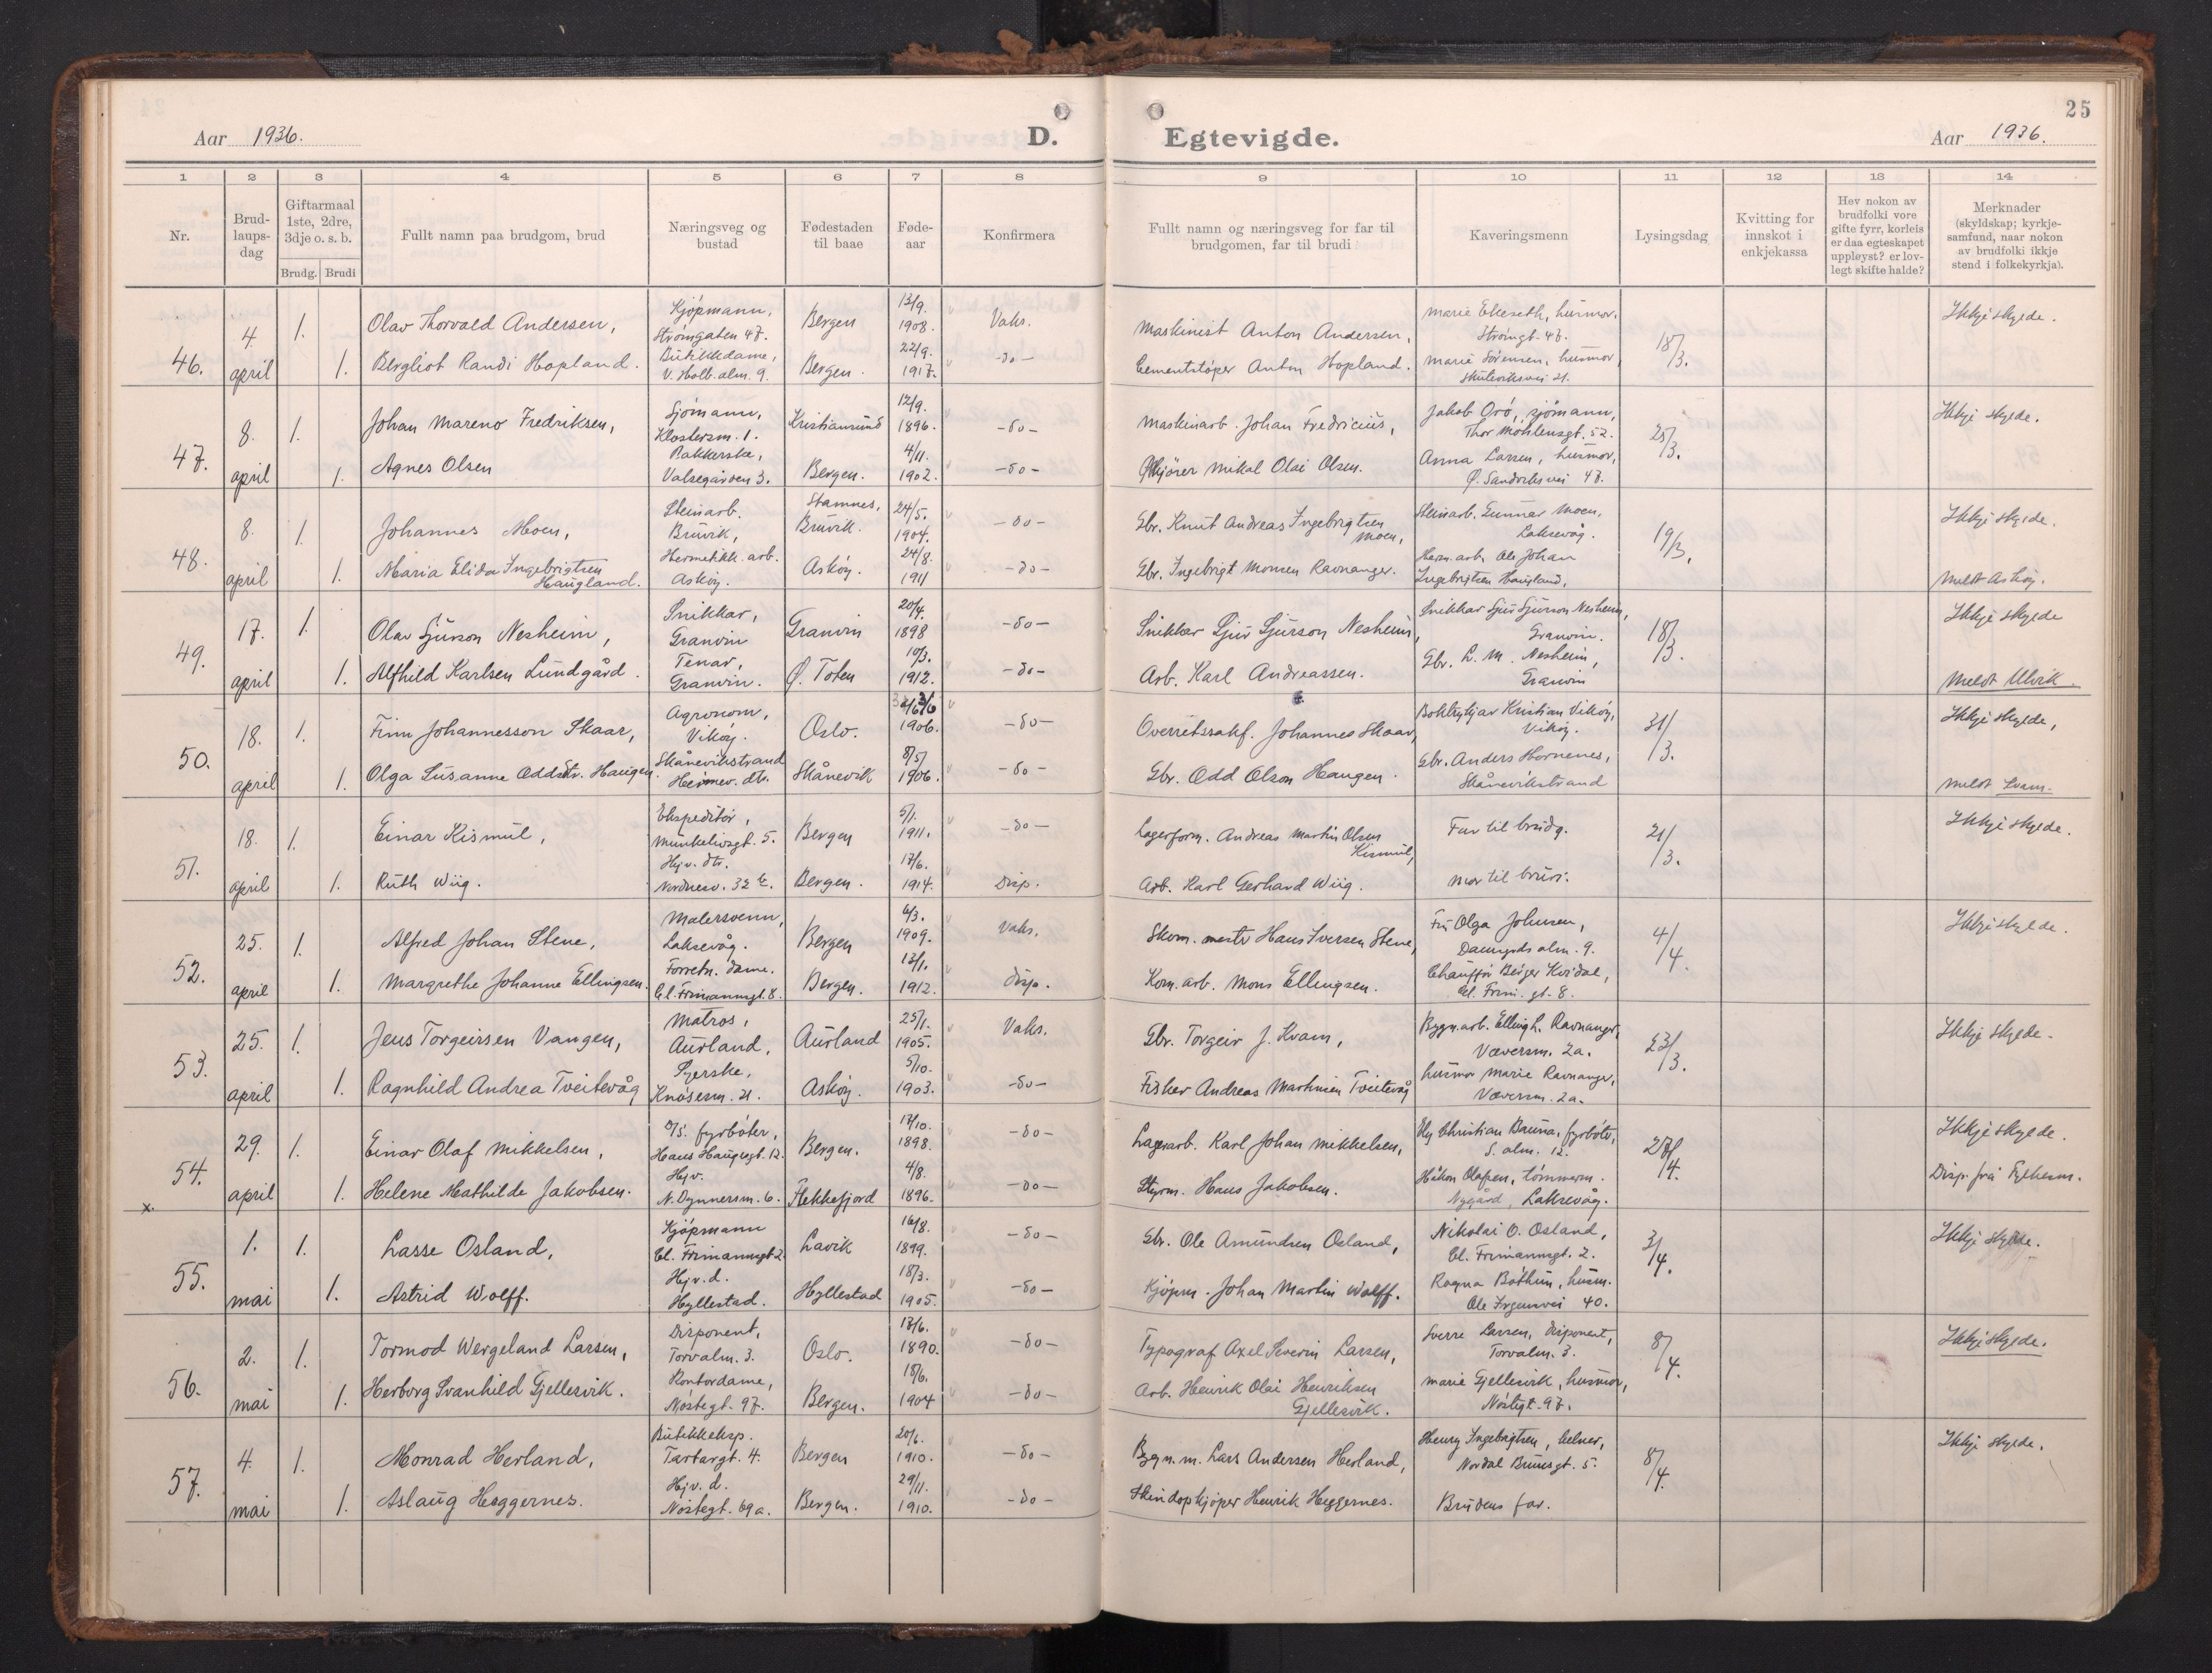 Aar 1936.
D.
Egtevigde.
25
Aar 1936.
1 2 3 4 5 6 7 8 9 10 11 12 13 14
Nr.
Brud-
laups-
dag
Giftarmaal
1ste, 2dre,
3dje o. s. b.
Brudg. Brudi
Fullt namn paa brudgom, brud
Næringsveg og
bustad
Fødestaden
til baae
Føde-
aar
Konfirmera
Fullt namn og næringsveg for far til
brudgomen, far til brudi
Kaveringsmenn
Lysingsdag
Kvitting for
innskot i
enkjekassa
Hev nokon av
brudfolki vore
gifte fyrr, korleis
er daa egteskapet
uppløyst? er lov-
legt skifte halde?
Merknader
(skyldskap; kyrkje-
samfund, naar nokon
av brudfolki ikkje
stend i folkekyrkja).
46.
4. april
1. Olav Thorvald Andersen, Kjøpmann, Strømgaten 47. Bergen 13/9. 1908. Vaks. Maskinist Anton Andersen, Marie Ekeseth, husmor, Strømgt. 47. 18/3. Ikkje skylde.
1. Bergliot Randi Hopland. Butikkdame, V. Holb. alm. 9. Bergen. 22/9. 1917. -do- Cementstøper Anton Hopland. Marie Sørensen, husmor, Skuteviksvei 21.
47.
8. april
1. Johan Mareno Fredriksen, Sjømann, Klosterm. 1. Kristiansund 12/9. 1896. -do- Maskinarb. Johan Fredricius, Jakob Orö, sjømann, Thor Møhlensgt. 52. 25/3. Ikkje skylde.
1. Agnes Olsen Pakkerske, Valsegården 3. Bergen. 4/11. 1902. -do- Mikal Olai Olsen. Anna Larsen, husmor, Ø. Sandviksvei 47.
48.
8. april
1. Johannes Moen, Steinarb. Bruvik, Stamnes, Bruvik. 24/5. 1904. -do- Gbr. Knut Andreas Ingebrigtsen Moen, Steinarb. Gunnar Moen, Laksevåg. 19/3. Ikkje skylde.
1. Maria Elida Ingebrigtsen Haugland. Hermetikk. arb. Askøy. Askøy. 24/8. 1911 -do- Gbr. Ingebrigt Monsen Ravnanger. Herm. arb. Ole Johan Ingebrigtsen Haugland, Meldt Askøy.
49.
17. april
1. Olav Sjurson Nesheim, Snikkar, Granvin Granvin 20/4. 1898 -do- Snikkar Sjur Sjurson Nesheim, Snikkar Sjur Sjurson Nesheim, Granvin. 18/3. Ikkje skylde
1. Alfhild Karlsen Lundgård. Tenar, Granvin. Ø. Toten 10/3. 1912. -do- Arb. Karl Andreassen. Gbr. L. M. Nesheim, Granvin Meldt Ulvik.
50.
18. april
1. Finn Johannesson Skaar, Agronom, Vikøy. Oslo. 1906. -do- Overrettssakf. Johannes Skaar, Boktrykjar Kristian Vikøy, Vikøy. 31/3. Ikkje skylde,
1. Olga Susanne Oddstr. Haugen. Skånevikstrand Heimev. dtr. Skånevik 8/5. 1906. -do- Gbr. Odd Olson Haugen. Gbr. Anders Hornenes, Skånevikstrand Meldt Kvam.
51.
18. april
1. Einar Kismul, Ekspeditør, Munkelivsgt. 5. Bergen 5/1. 1911. -do- Lagerform. Andreas Martin Olsen Kismul, Far til brudg. 21/3. Ikkje skylde.
1. Ruth Wiig. Hjv. dtr. Nordnesv. 32 b. Bergen. 17/6. 1914. Disp. Arb. Karl Gerhard Wiig. Mor til brudi.
52.
25. april
1. Alfred Johan Stene, Malersvenn, Laksevåg. Bergen 6/3. 1909. Vaks. Skom. mester Hans Iversen Stene, Fru Olga Johnsen, Damsgårds alm. 9. 4/4. Ikkje skylde.
1. Margrethe Johanne Ellingsen. Forretn. dame. Cl. Frimannsgt. 8. Bergen. 13/1. 1912. disp. Kom. arb. Mons Ellingsen. Chauffør Birger Kvidal, Cl. Frim. gt. 8.
53.
25. april
1. Jens Torgeirsen Vangen, Matros, Aurland, Aurland 25/1. 1905. Vaks. Gbr. Torgeir J. Kvam, Bygn. arb. Elling L. Ravnanger, Væversm. 2a. 23/3. Ikkje skylde.
1. Ragnhild Andrea Tveitevåg Syerske, Knøsesm. 21. Askøy. 5/10. 1903. -do- Fisker Andreas Martinsen Tveitevåg husmor Marie Ravnanger, Væversm. 2a.
54.
x.
29. april
1. Einar Olaf Mikkelsen, D/S. fyrbøter, Hans Haugesgt. 12. Bergen. 17/10. 1898. -do- Lagerarb. Karl Johan Mikkelsen, Christian Bruna, fyrbøter, S. alm. 12. Ikkje skylde.
1. Helene Mathilde Jakobsen. Hjv. N. Dynnersm. 6. Flekkefjord 4/8. 1896. -do- Styrm. Hans Jakobsen. Håkon Olafsen, tømmerm. Nygård, Laksevåg. Disp. frå Fylkesm.
55.
1. mai
1. Lasse Osland, Kjøpmann Cl. Frimannsgt. 2 Lavik 16/8. 1899. -do- Gbr. Ole Amundsen Osland, Nikolai O. Osland, Cl. Frimannsgt. 2. 3/4. Ikkje skylde.
1. Astrid Wolff. Hjv. d. Hyllestad. Hyllestad 18/3. 1905. -do- Kjøpm. Johan Martin Wolff. Ragna Bøthun, husm. Ole Irgensvei 40.
56.
2. mai
1. Tormod Wergeland Larsen, Disponent, Torvalm. 3. Oslo. 17/6. 1890. -do- Typograf Axel Severin Larsen, Sverre Larsen, disponent, Torvalm. 3. 8/4. Ikkje skylde.
1. Herborg Svanhild Gjellesvik. Kontordame, Nøstegt. 97. Bergen. 18/6. 1904 -do- Arb. Henrik Olai Henriksen Gjellesvik. Marie Gjellesvik, husmor, Nøstegt. 97.
57.
4. mai
1. Monrad Herland, Butikkeksp. Tartargt. 4. Bergen 20/6. 1910. -do- Bygn. m. Lars Andersen Herland, Henry Ingebrigtsen, kelner, Nordal Brunsgt. 5. 8/4. Ikkje skylde.
1. Aslaug Heggernes. Hjv. d. Nøstegt. 69a. Bergen. 29/11. 1910. -do- Skindopkjøper Henrik Heggernes. Brudens far.